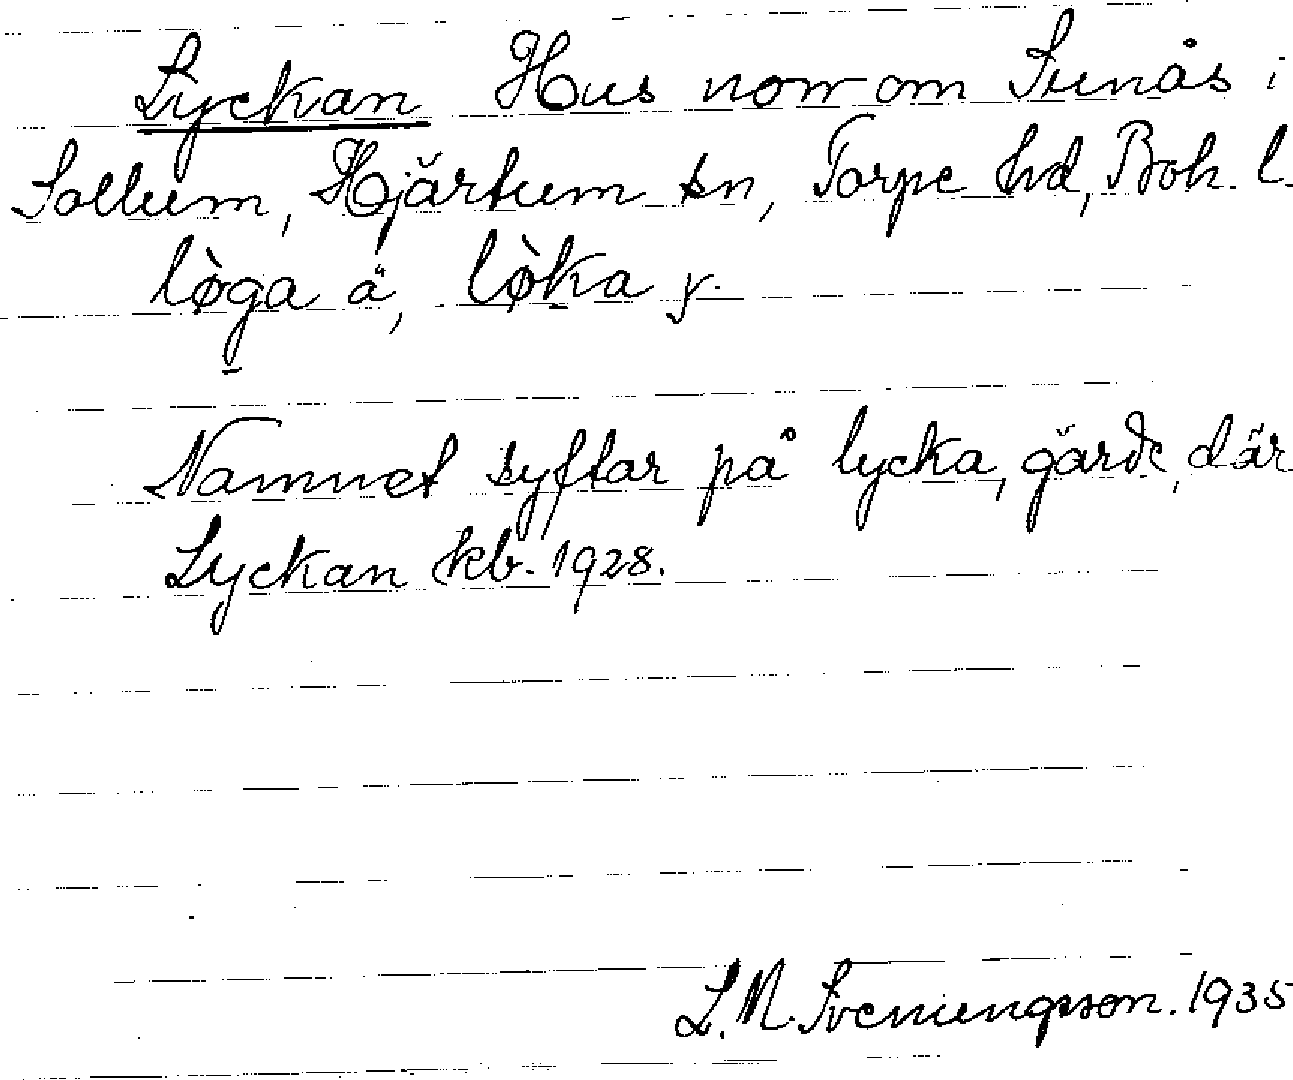 Lyckan Hus norr om Sunås i
Sollum, Hjärtum sn, Torpe hd, Boh. l.
lø̀ga ä, lø̀ka y.
Namnet syftar på lycka, gärde, där
Lyckan kb. 1928.
L. N. Svenungsson. 1935